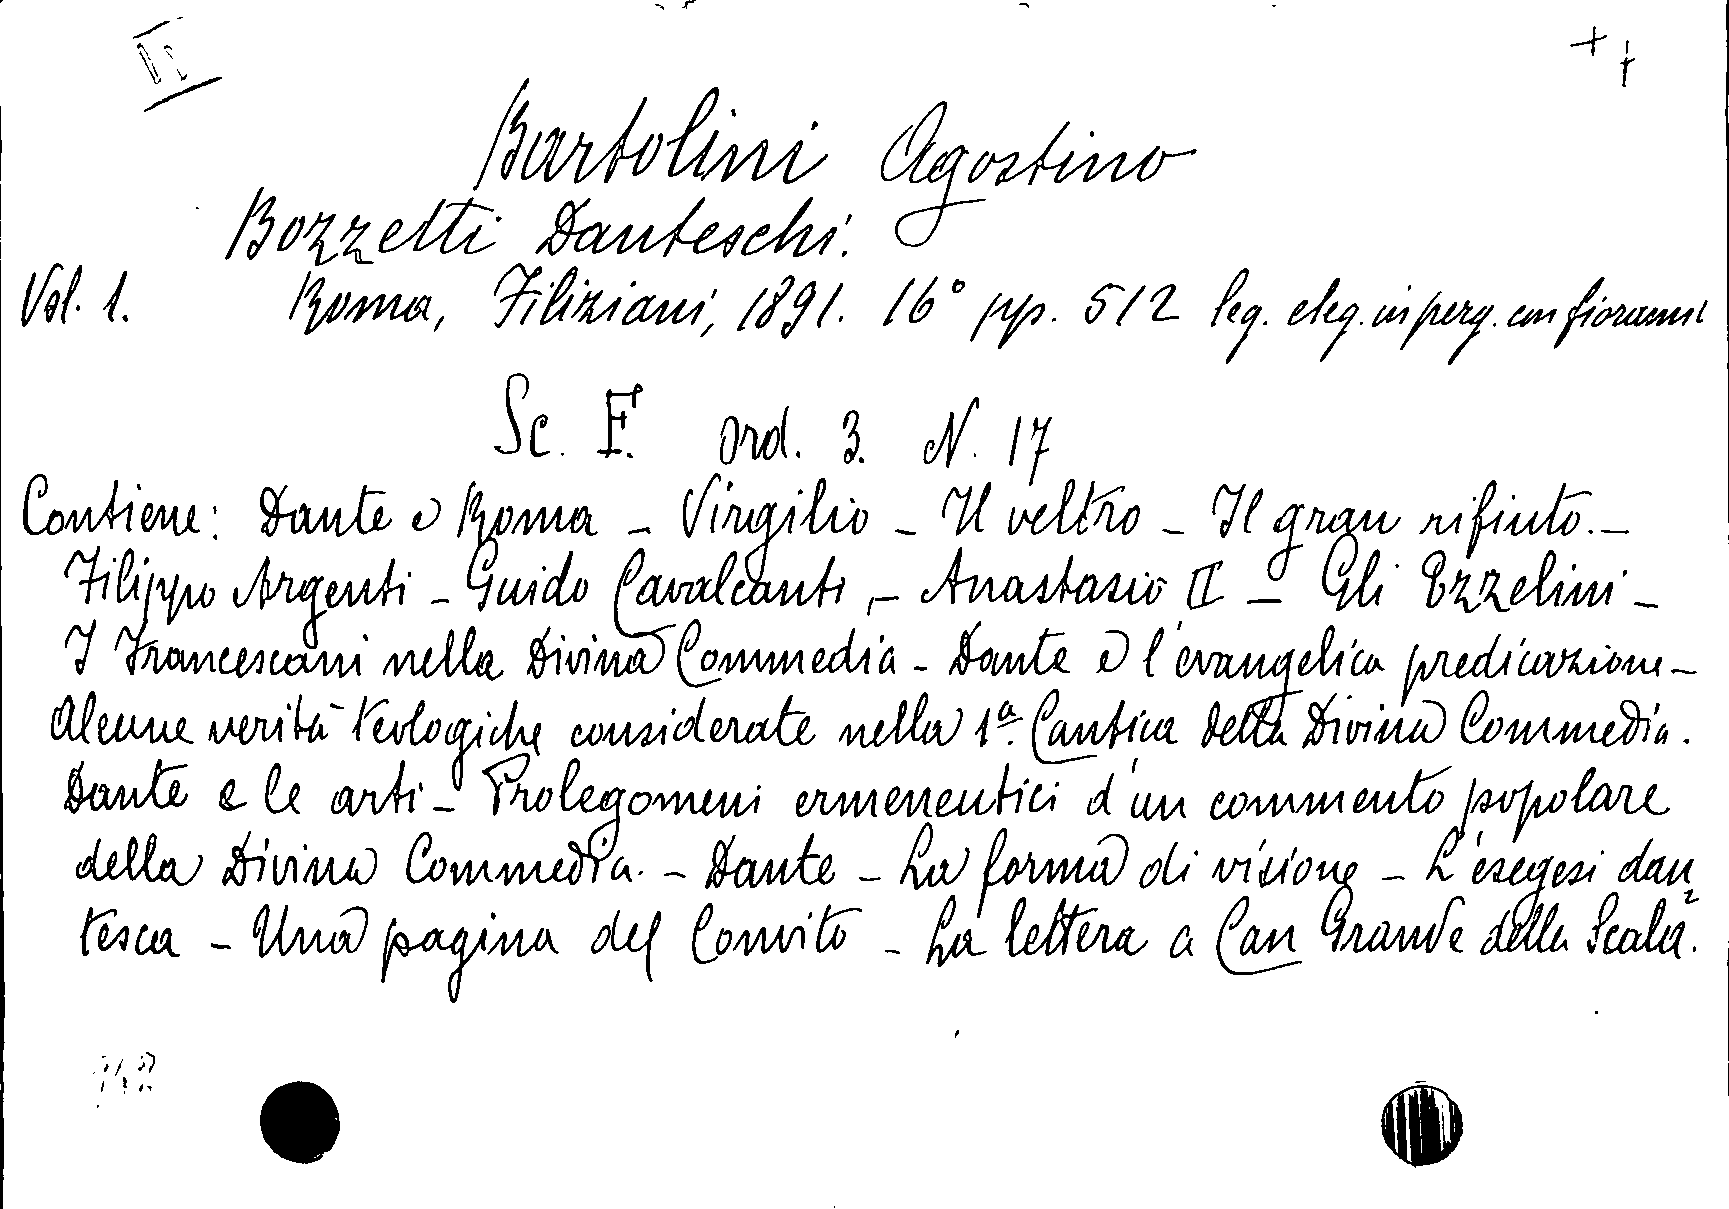 Bartolini Agostino
Bozzetti Danteschi.
Vol. 1. Roma, Filiziani, 1891. 16° pp. 512 leg. eleg. in perg. con
Sc. F. Ord. 3. N. 17
Contiene: Dante e Roma - Virgilio - Il veltro - Il gran rifiuto. -
Filippo Argenti - Guido Cavalcanti, - Anastasio II - Gli Ezzelini -
I Francescani nella Divina Commedia - Dante e l'evangelica predicazione -
Alcune verità teologiche considerate nella 1ª. Cantica della Divina Commedia.
Dante e le arti - Prolegomeni ermeneutici d'un commento popolare
della Divina Commedia. - Dante - La forma di visione - L'esegesi dan
tesca - Una pagina del Convito - La lettera a Can Grande della Scala.